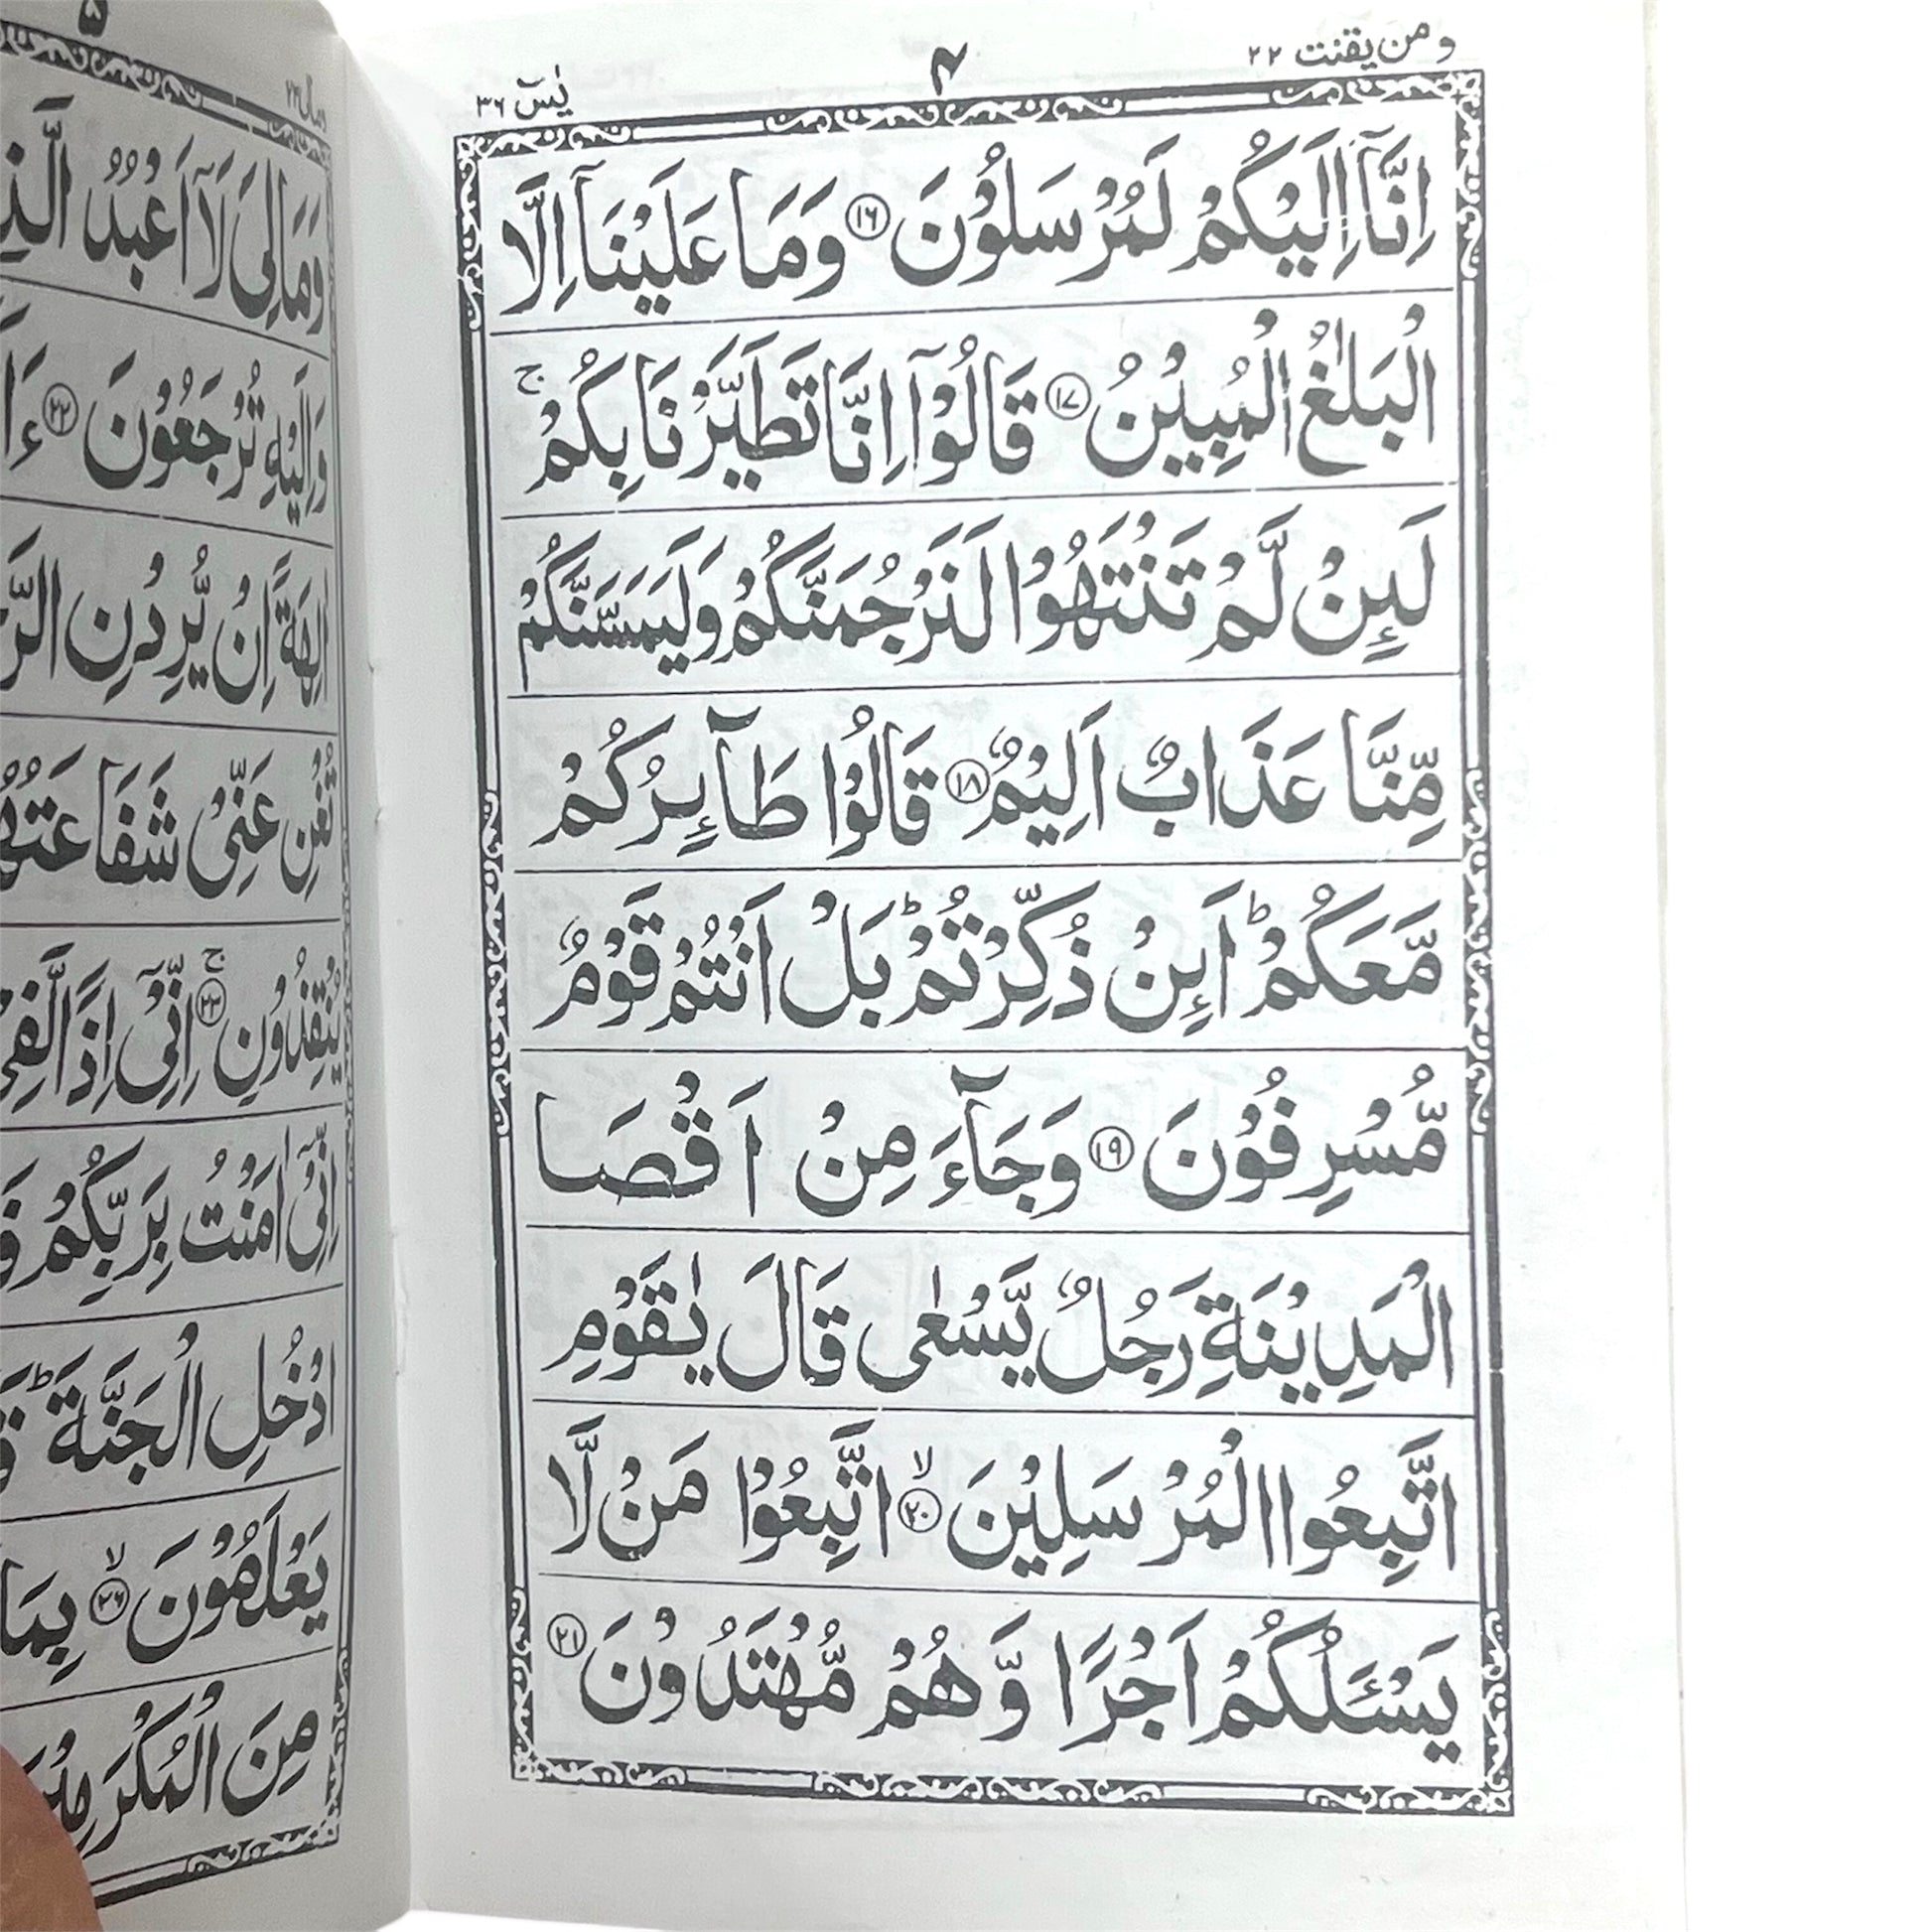 ومن يقنت ٢٢
٤
يٰسٓ ٣٦
اِنَّاۤ اِلَيْكُمْ لَمُرْسَلُوْنَ ﴿۱۶﴾ وَمَا عَلَيْنَاۤ اِلَّا
الْبَلٰغُ الْمُبِيْنُ ﴿۱۷﴾ قَالُوْۤا اِنَّا تَطَيَّرْنَا بِكُمْ ۚ
لَئِنْ لَّمْ تَنْتَهُوْا لَنَرْجُمَنَّكُمْ وَلَيَمَسَّنَّكُمْ
مِّنَّا عَذَابٌ اَلِيْمٌ ﴿۱۸﴾ قَالُوْا طَآئِرُكُمْ
مَّعَكُمْ ؕ اَئِنْ ذُكِّرْتُمْ ؕ بَلْ اَنْتُمْ قَوْمٌ
مُّسْرِفُوْنَ ﴿۱۹﴾ وَجَآءَ مِنْ اَقْصَا
الْمَدِيْنَةِ رَجُلٌ يَّسْعٰى قَالَ يٰقَوْمِ
اتَّبِعُوا الْمُرْسَلِيْنَ ﴿۲۰﴾ۙ اتَّبِعُوْا مَنْ لَّا
يَسْـَٔلُكُمْ اَجْرًا وَّهُمْ مُّهْتَدُوْنَ ﴿۲۱﴾
ومالی ٢٣
٥
وَمَا لِىَ لَاۤ اَعْبُدُ
وَاِلَيْهِ تُرْجَعُوْنَ ﴿۲۲﴾
اٰلِهَةً اِنْ يُّرِدْنِ
تُغْنِ عَنِّىْ شَفَاعَتُهُمْ
يُنْقِذُوْنِ ﴿۲۳﴾ۚ اِنِّىْۤ اِذًا لَّفِىْ
اِنِّىْۤ اٰمَنْتُ بِرَبِّكُمْ
ادْخُلِ الْجَنَّةَ ؕ
يَعْلَمُوْنَ ﴿۲۶﴾ۙ بِمَا
مِنَ الْمُكْرَمِيْنَ